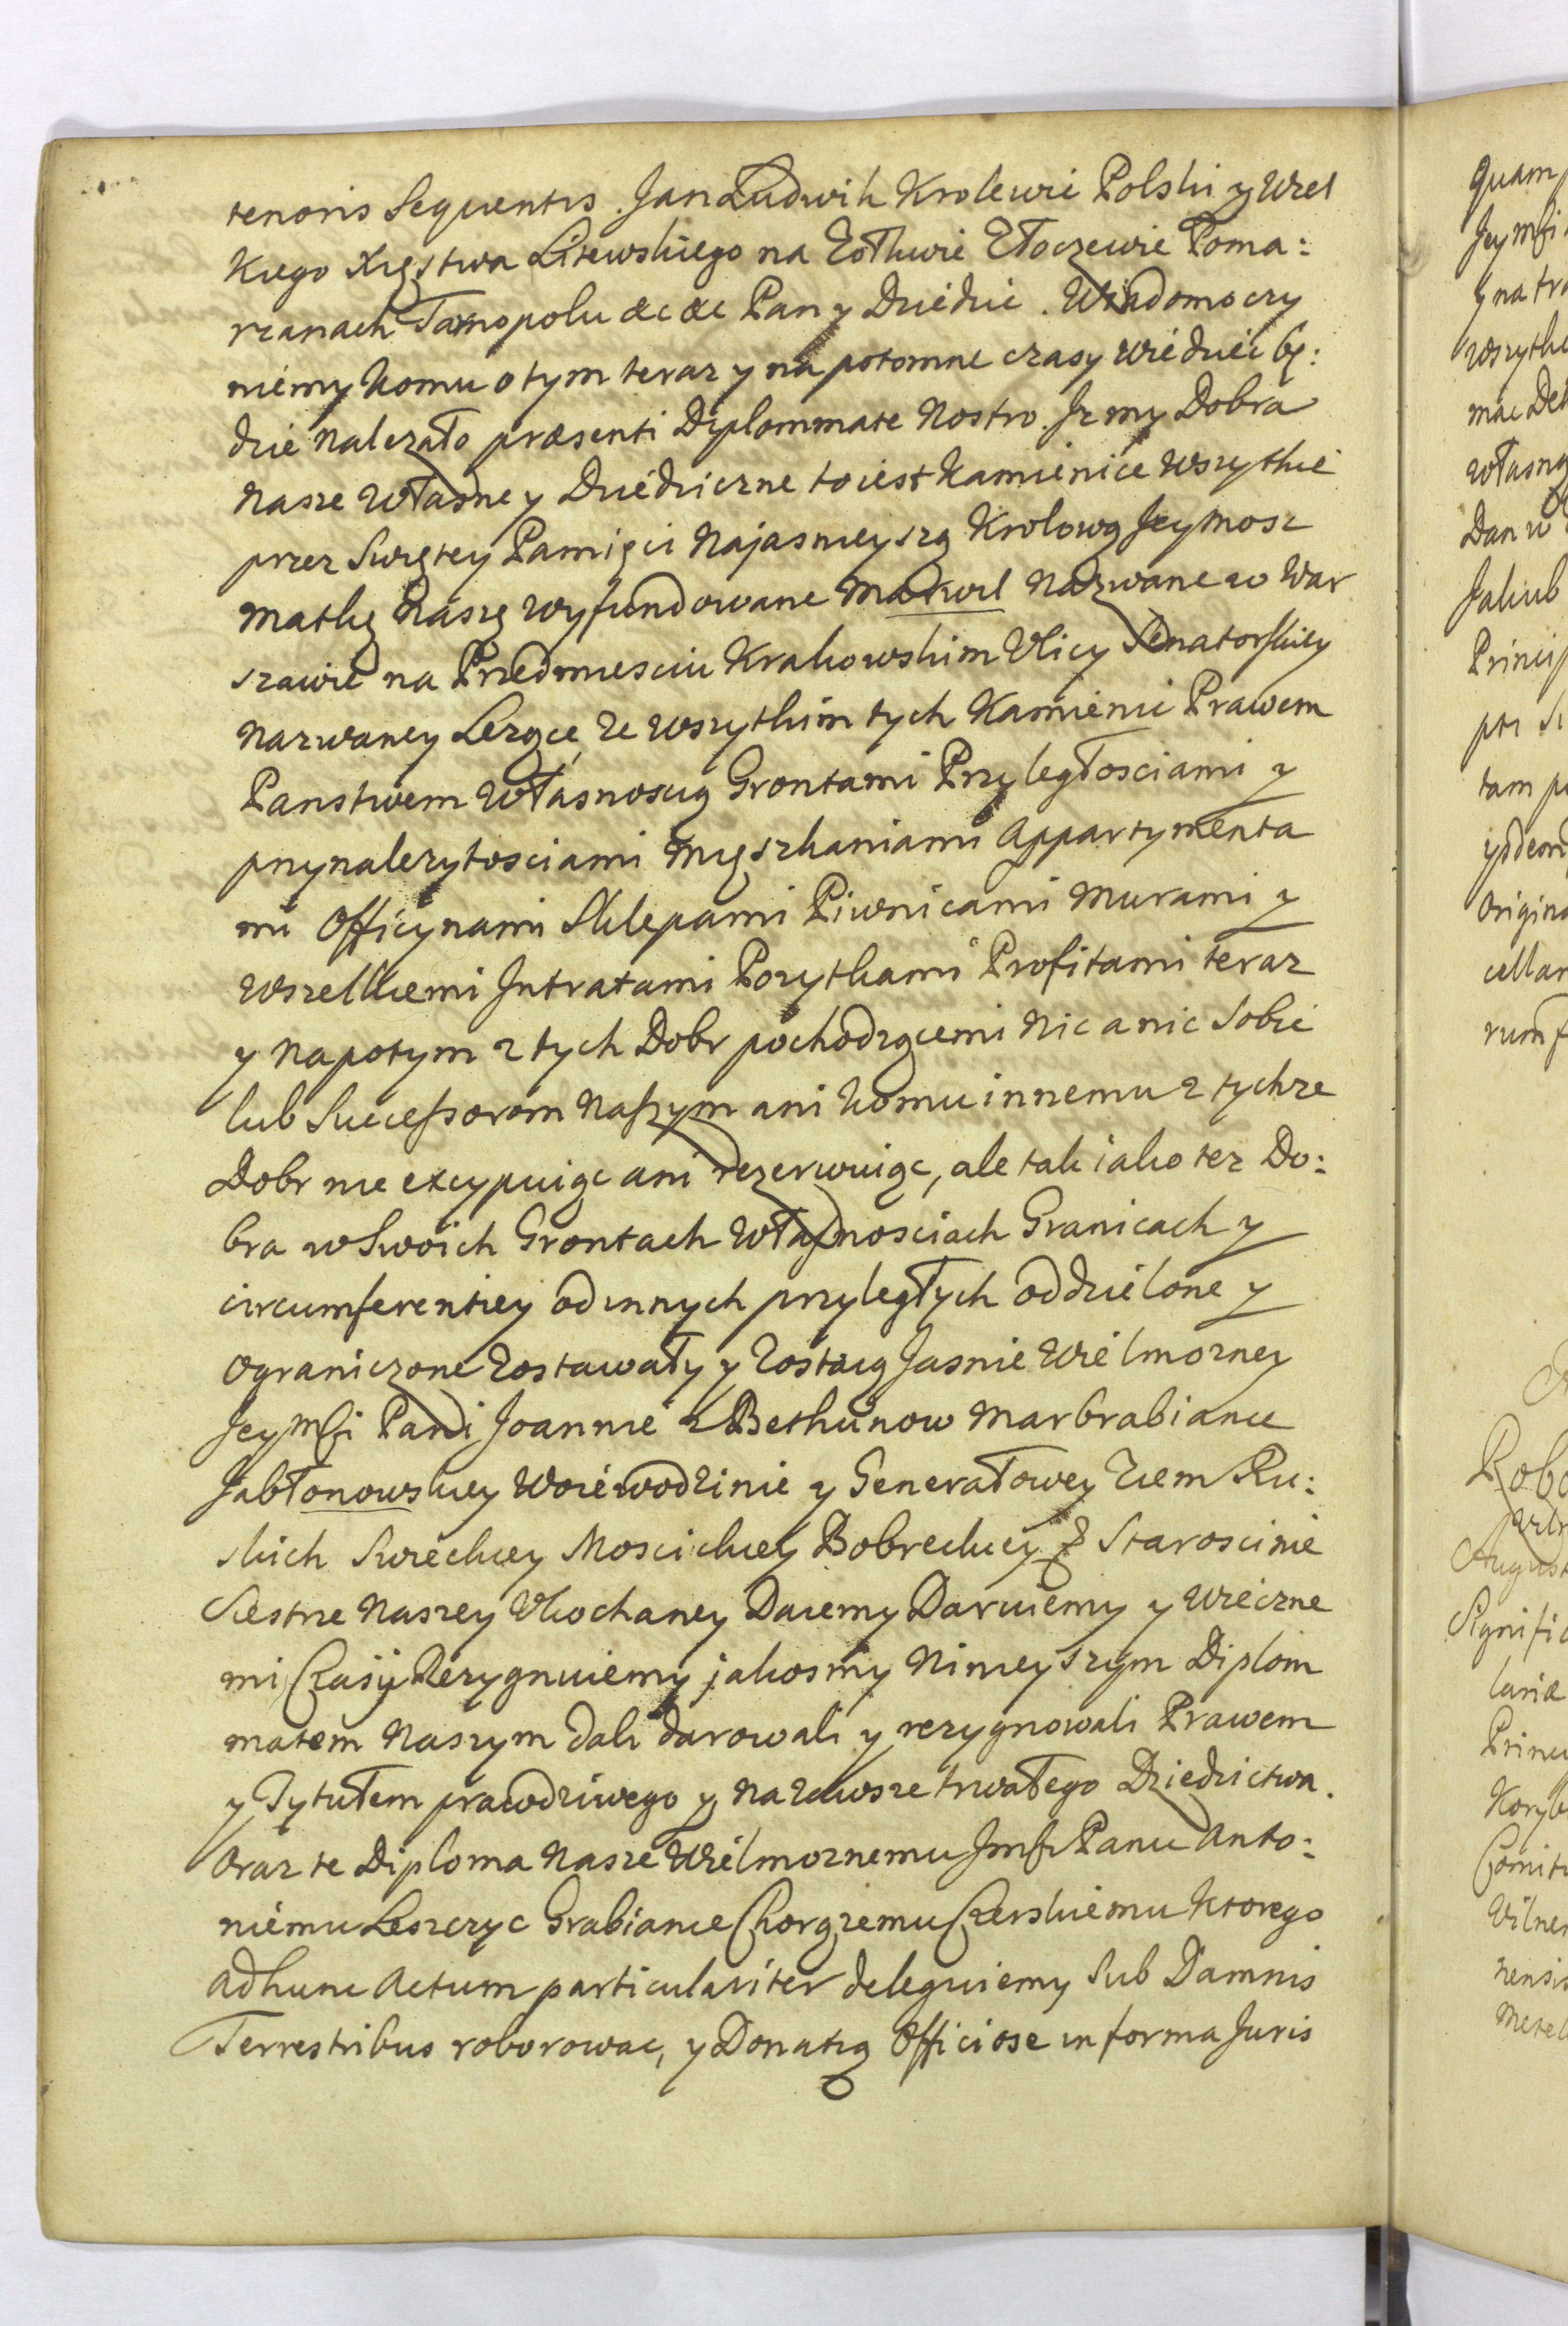 tenoris Sequentis. Jan Ludwik Krolewic Polski y Wiel
kiego Xięstwa Litewskiego na Zołkwie Złoczewie Poma:
rzanach Tarnopolu &c &c Pan y Dziedzic. Wiadomo czy
niemy komu o tym teraz y na potomne czasy wiedzieć bę:
dzie nalezało præsenti Diplommate Nostro. Jz my Dobra
Nasze własne y Dziedziczne to iest Kamienice wszytkie
przez Swiętey Pamięci Najasnieyszą Krolową Jeymosz
Matkę Naszę wyfundowane Markwil Nazwane w War
szawie na Przedmiesciu Krakowskim Vlicy Senatorskiey
nazwaney Lezące, ze wszytkim tych Kamienic Prawem
Panstwem własnoscią Grontami Przyległosciami y
przynalezytosciami Mięszkaniami Appartymenta
mi Officynami Sklepami Piwnicami Murami y
wszelkiemi Jntratami Pozytkami Profitami teraz
y napotym z tych Dobr pochodzącemi nic a nic Sobie
lub Successorom Naszym ani komu innemu z tychze
Dobr nie excypuiąc ani rezerwuiąc, ale tak iako tez Do:
bra w Swoich Grontach własnosciach Granicach y
circumferentiey od innych przyległych oddzielone y
ograniczone zostawały y zostaią Jasnie Wielmozney
Jeymsci Pani Joannie z Bethunow Margrabiance
Jabłonowskiey Woiewodzinie y Generałowey Ziem Ru:
skich Swieckiey Moscickiey Bobreckiey & Staroscinie
Siestrze Naszey Vkochaney Daiemy Daruiemy y wieczne
mi Czasy Rezygnuiemy jakosmy Ninieyszym Diplom
matem Naszym dali darowali y rezygnowali Prawem
y Tytułem prawdziwego y na zawsze trwałego Dziedzictwa.
Oraz te Diploma Nasze Wielmoznemu Jmsci Panu Anto:
niemu Leszczyc Grabiance Chorązemu Czerskiemu ktorego
ad hunc Actum particulariter deleguiemy Sub Damnis
Terrestribus roborowac, y Donatią Officiose in forma Juris